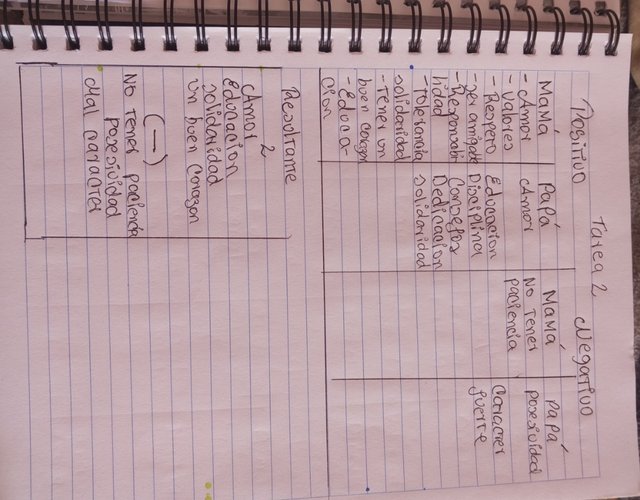 Tarea 2
Positivo
Negativo
Mamá
- Amor
- Valores
- Respeto
- ser amigable
- Responsabi
lidad
- tolerancia
solidaridad
- Tener un
buen corazon
- Educa-
cion
Papá
Amor
Educacion
Disciplina
Consejos
Dedicacion
Solidaridad
Mamá
No tener
paciencia
Papá
posesividad
Caracter
fuerte
Resultante
2
Amor
Educacion
solidaridad
un buen corazon
(—)
No tener paciencia
posesividad
Mal caracter